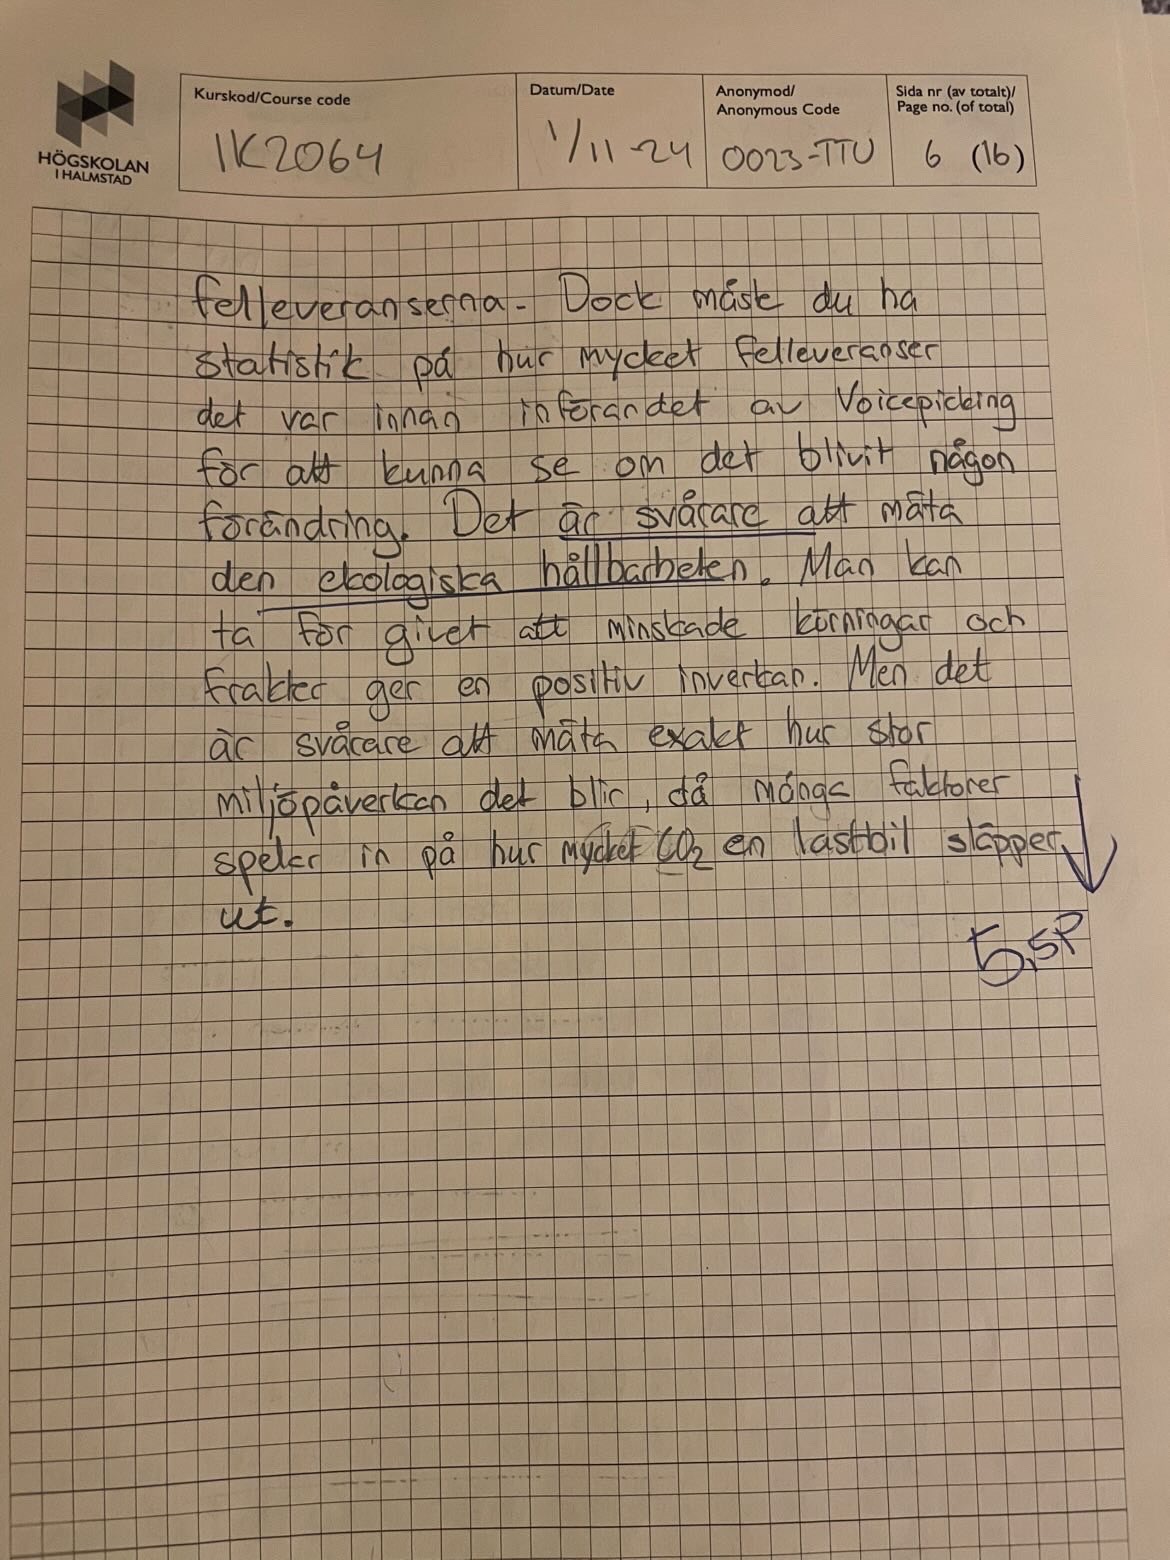 HÖGSKOLAN
I HALMSTAD
Kurskod/Course code
IK2064
Datum/Date
1/11-24
Anonymod/
Anonymous Code
0023-TTU
Sida nr (av totalt)/
Page no. (of total)
6 (16)
felleveranserna. Dock måste du ha
statistik på hur mycket felleveranser
det var innan införandet av Voicepicking
för att kunna se om det blivit någon
förändring. Det är svårare att mäta
den ekologiska hållbarheten. Man kan
ta för givet att minskade körningar och
frakter ger en positiv inverkan. Men det
är svårare att mäta exakt hur stor
miljöpåverkan det blir, då många faktorer
spelar in på hur mycket CO2 en lastbil släpper
ut.
5,5P